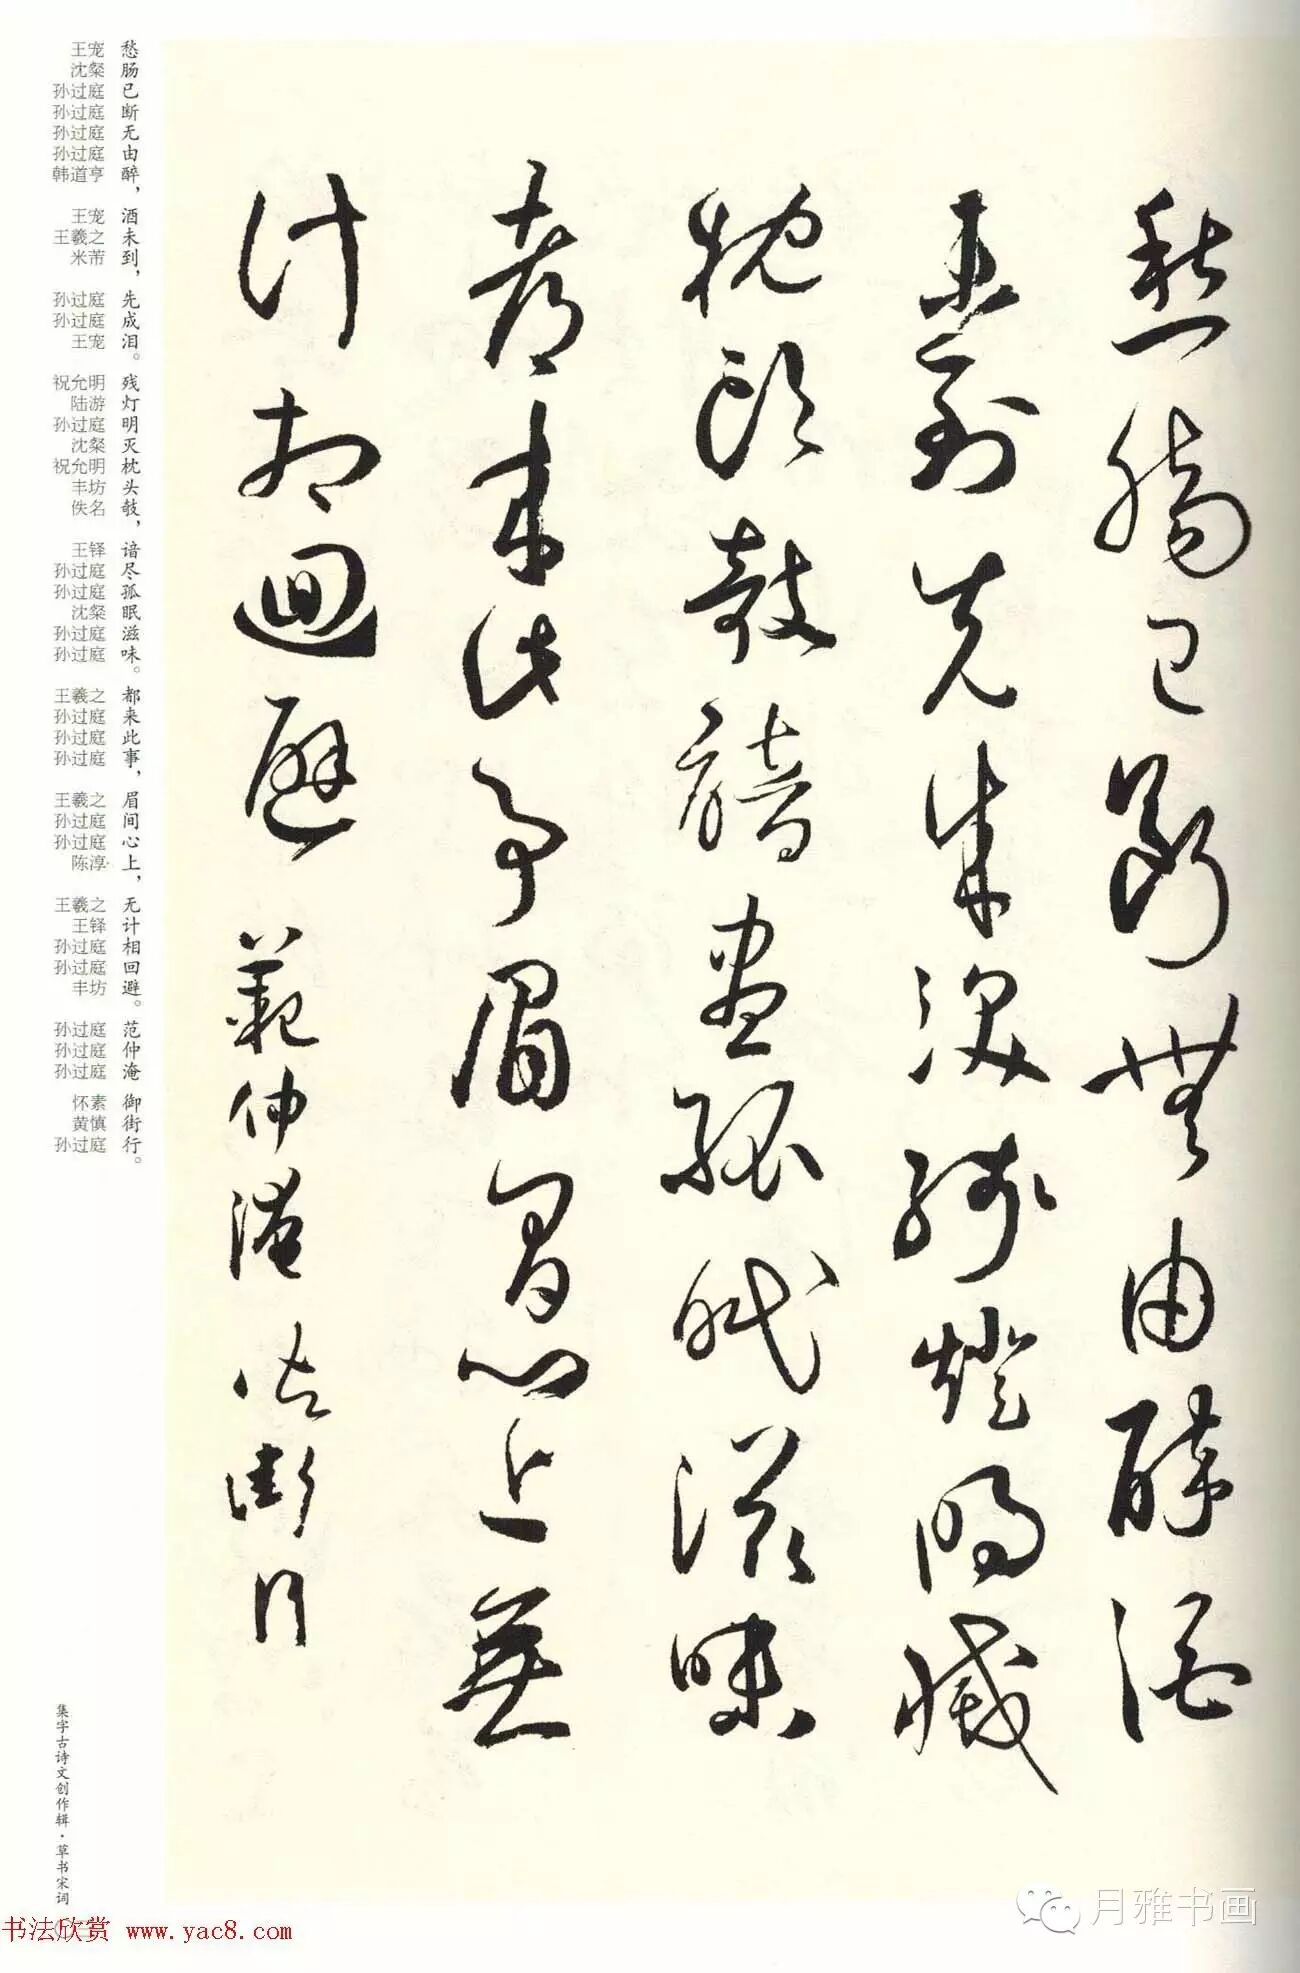 愁腸已斷無由醉酒
未到先成淚殘燈明滅
枕頭敧諳盡孤眠滋味
都來此事眉間心上無
計相迴避 範仲淹 御街行
愁肠已断无由醉，酒未到，先成泪。残灯明灭枕头敧，谙尽孤眠滋味。都来此事，眉间心上，无计相回避。范仲淹 御街行。
王宠 沈粲 孙过庭 孙过庭 孙过庭 孙过庭 韩道亨 王宠 王羲之 米芾 孙过庭 孙过庭 王宠 祝允明 陆游 孙过庭 沈粲 祝允明 丰坊 佚名 王铎 孙过庭 孙过庭 沈粲 孙过庭 孙过庭 王羲之 孙过庭 孙过庭 孙过庭 王羲之 孙过庭 孙过庭 陈淳 王羲之 王铎 孙过庭 孙过庭 丰坊 孙过庭 孙过庭 孙过庭 怀素 黄慎 孙过庭
集字古诗文创作辑·草书宋词
书法欣赏 www.yac8.com
月雅书画